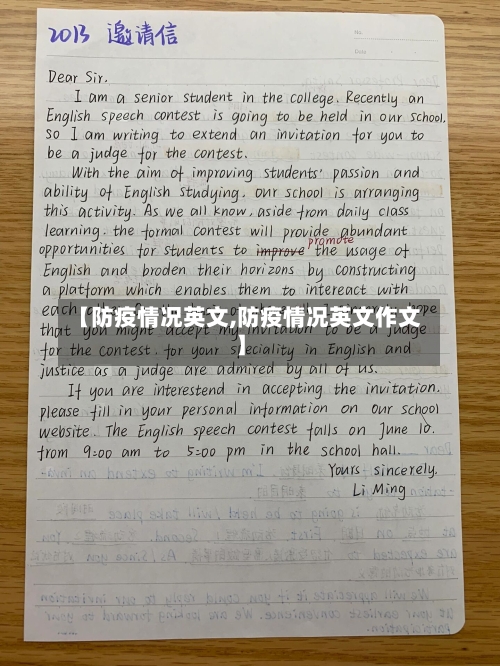 2013 邀请信
NO.
Date
Dear Sir,
I am a senior student in the college. Recently an
English speech contest is going to be held in our school,
so I am writing to extend an invitation for you to
be a judge for the contest.
With the aim of improving students' passion and
ability of English studying, our school is arranging
this activity. As we all know, aside from daily class
learning, the formal contest will provide abundant
promote
opportunities for students to improve the usage of
English and broden their horizons by constructing
a platform which enables them to intereact with
each
hope
【防疫情况英文,防疫情况英文作文
】
that you might accept my invitation to be a judge
for the contest, for your speciality in English and
justice as a judge are admired by all of us.
If you are interestend in accepting the invitation,
please fill in your personal information on our school
website. The English speech contest falls on June 10,
from 9:00 am to 5:00 pm in the school hall.
Yours sincerely,
Li Ming